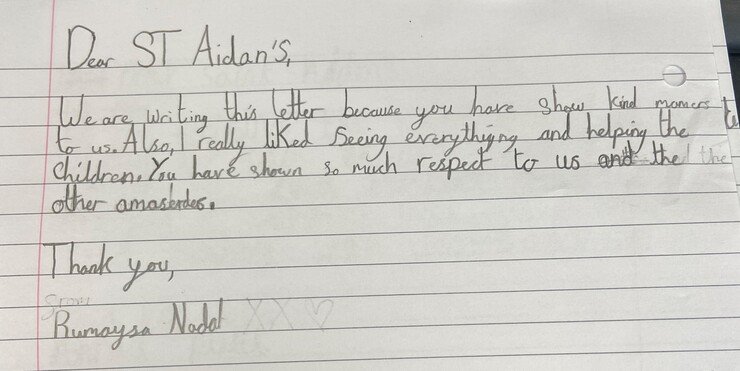 Dear ST Aidan's,
We are writing this letter because you have show kind momers to
to us. Also, I really liked seeing everythigng and helping the
children. You have shown so much respect to us and the the
other amaserdes.
Thank you,
from
Rumaysa Nadal XX♡